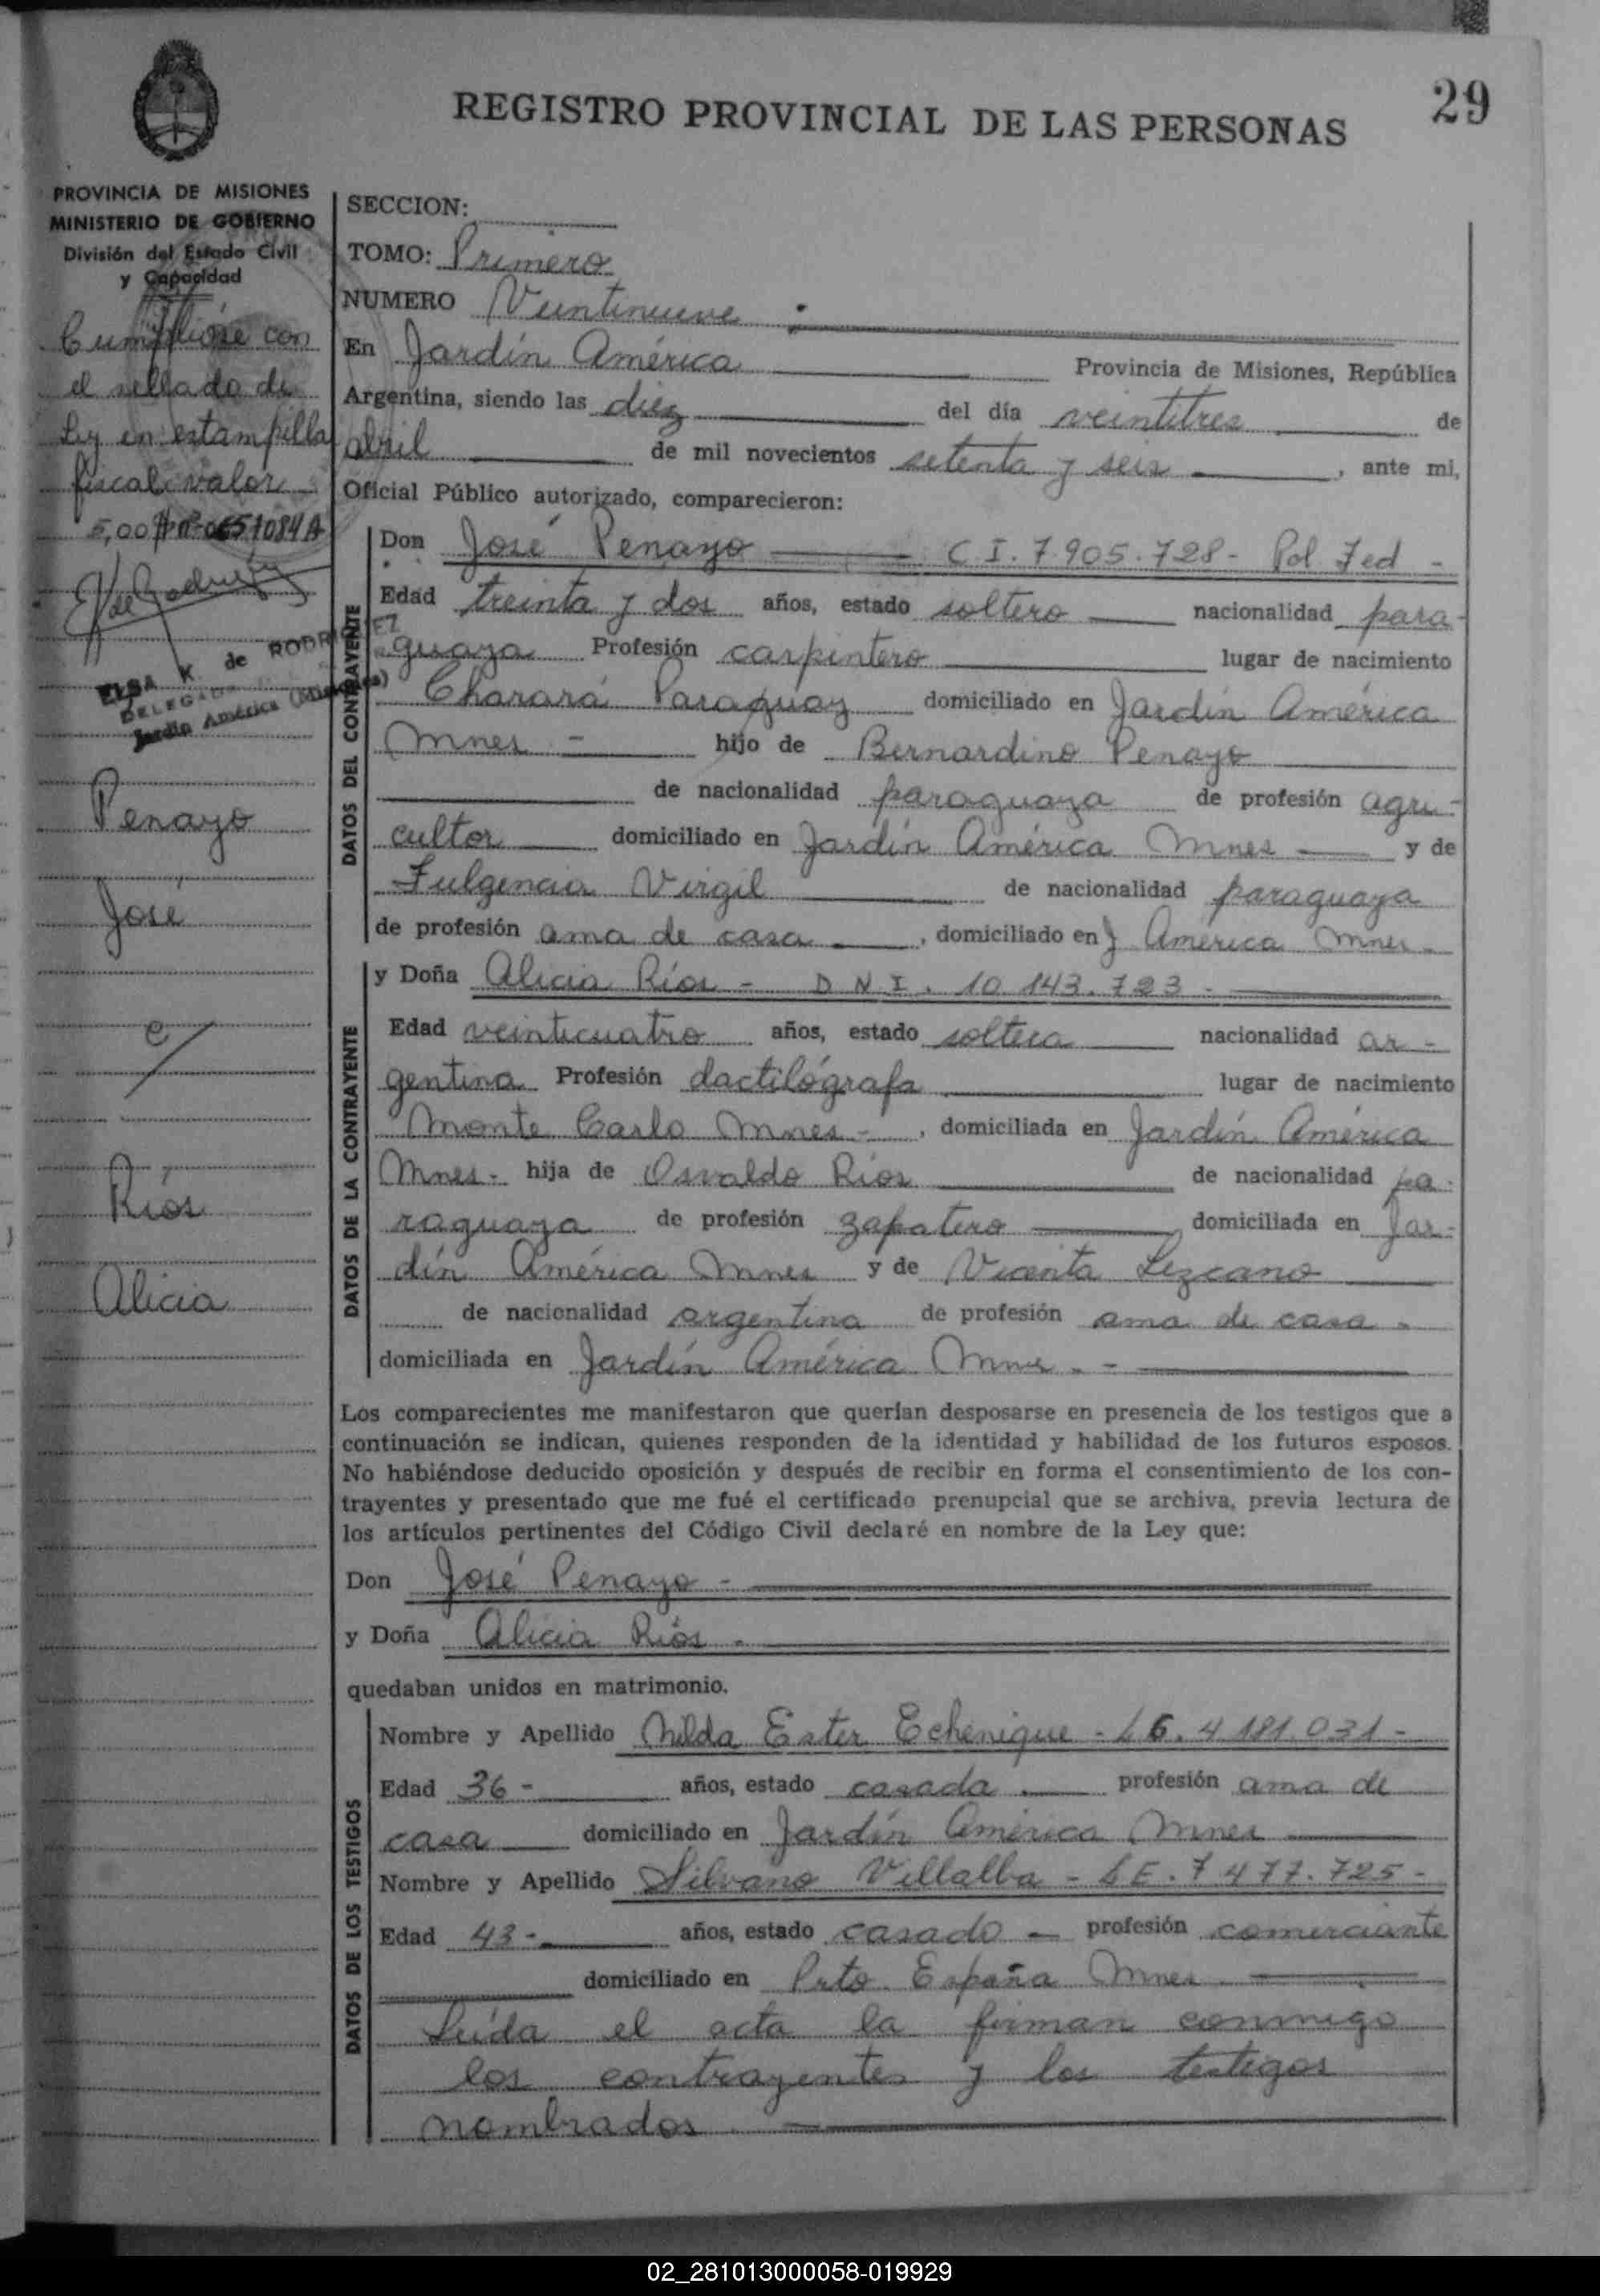 29
REGISTRO PROVINCIAL DE LAS PERSONAS
PROVINCIA DE MISIONES
MINISTERIO DE GOBIERNO
División del Estado Civil
y Capacidad
Cumplióse con
el sellado de
Ley en estampilla
fiscal valor
5,00
ELSA K. de RODRIGUEZ
DELEGADA
Jardín América (Misiones)
Penayo
José
c/
Ríos
Alicia
SECCION:
TOMO: Primero
NUMERO Veintinueve
En Jardín América Provincia de Misiones, República
Argentina, siendo las diez del día veintitres de
abril de mil novecientos setenta y seis, ante mi,
Oficial Público autorizado, comparecieron:
DATOS DEL CONTRAYENTE
Don José Penayo C I. 7.905.728- Pol Fed -
Edad treinta y dos años, estado soltero nacionalidad para-
guaya Profesión carpintero lugar de nacimiento
Charará Paraguay domiciliado en Jardín América
Mnes - hijo de Bernardino Penayo
de nacionalidad paraguaya de profesión agri-
cultor domiciliado en Jardín América Mnes y de
Fulgencia Virgil de nacionalidad paraguaya
de profesión ama de casa, domiciliado en J América Mnes -
DATOS DE LA CONTRAYENTE
y Doña Alicia Ríos - D N I. 10 143.723 -
Edad veinticuatro años, estado soltera nacionalidad ar-
gentina Profesión dactilógrafa lugar de nacimiento
Monte Carlo Mnes-, domiciliada en Jardín América
Mnes- hija de Osvaldo Ríos de nacionalidad pa-
raguaya de profesión zapatero domiciliada en Jar-
dín América Mnes y de Vicenta Lezcano
de nacionalidad argentina de profesión ama de casa -
domiciliada en Jardín América Mnes - -
Los comparecientes me manifestaron que querían desposarse en presencia de los testigos que a
continuación se indican, quienes responden de la identidad y habilidad de los futuros esposos.
No habiéndose deducido oposición y después de recibir en forma el consentimiento de los con-
trayentes y presentado que me fué el certificado prenupcial que se archiva, previa lectura de
los artículos pertinentes del Código Civil declaré en nombre de la Ley que:
Don José Penayo -
y Doña Alicia Ríos -
quedaban unidos en matrimonio.
DATOS DE LOS TESTIGOS
Nombre y Apellido Nilda Ester Echenique - 4 181.031 -
Edad 36 - años, estado casada profesión ama de
casa domiciliado en Jardín América Mnes
Nombre y Apellido Silvano Villalba - L E. 7 477.725 -
Edad 43 - años, estado casado - profesión comerciante
domiciliado en Prto España Mnes
Leída el acta la firman conmigo
los contrayentes y los testigos
nombrados
02_281013000058-019929